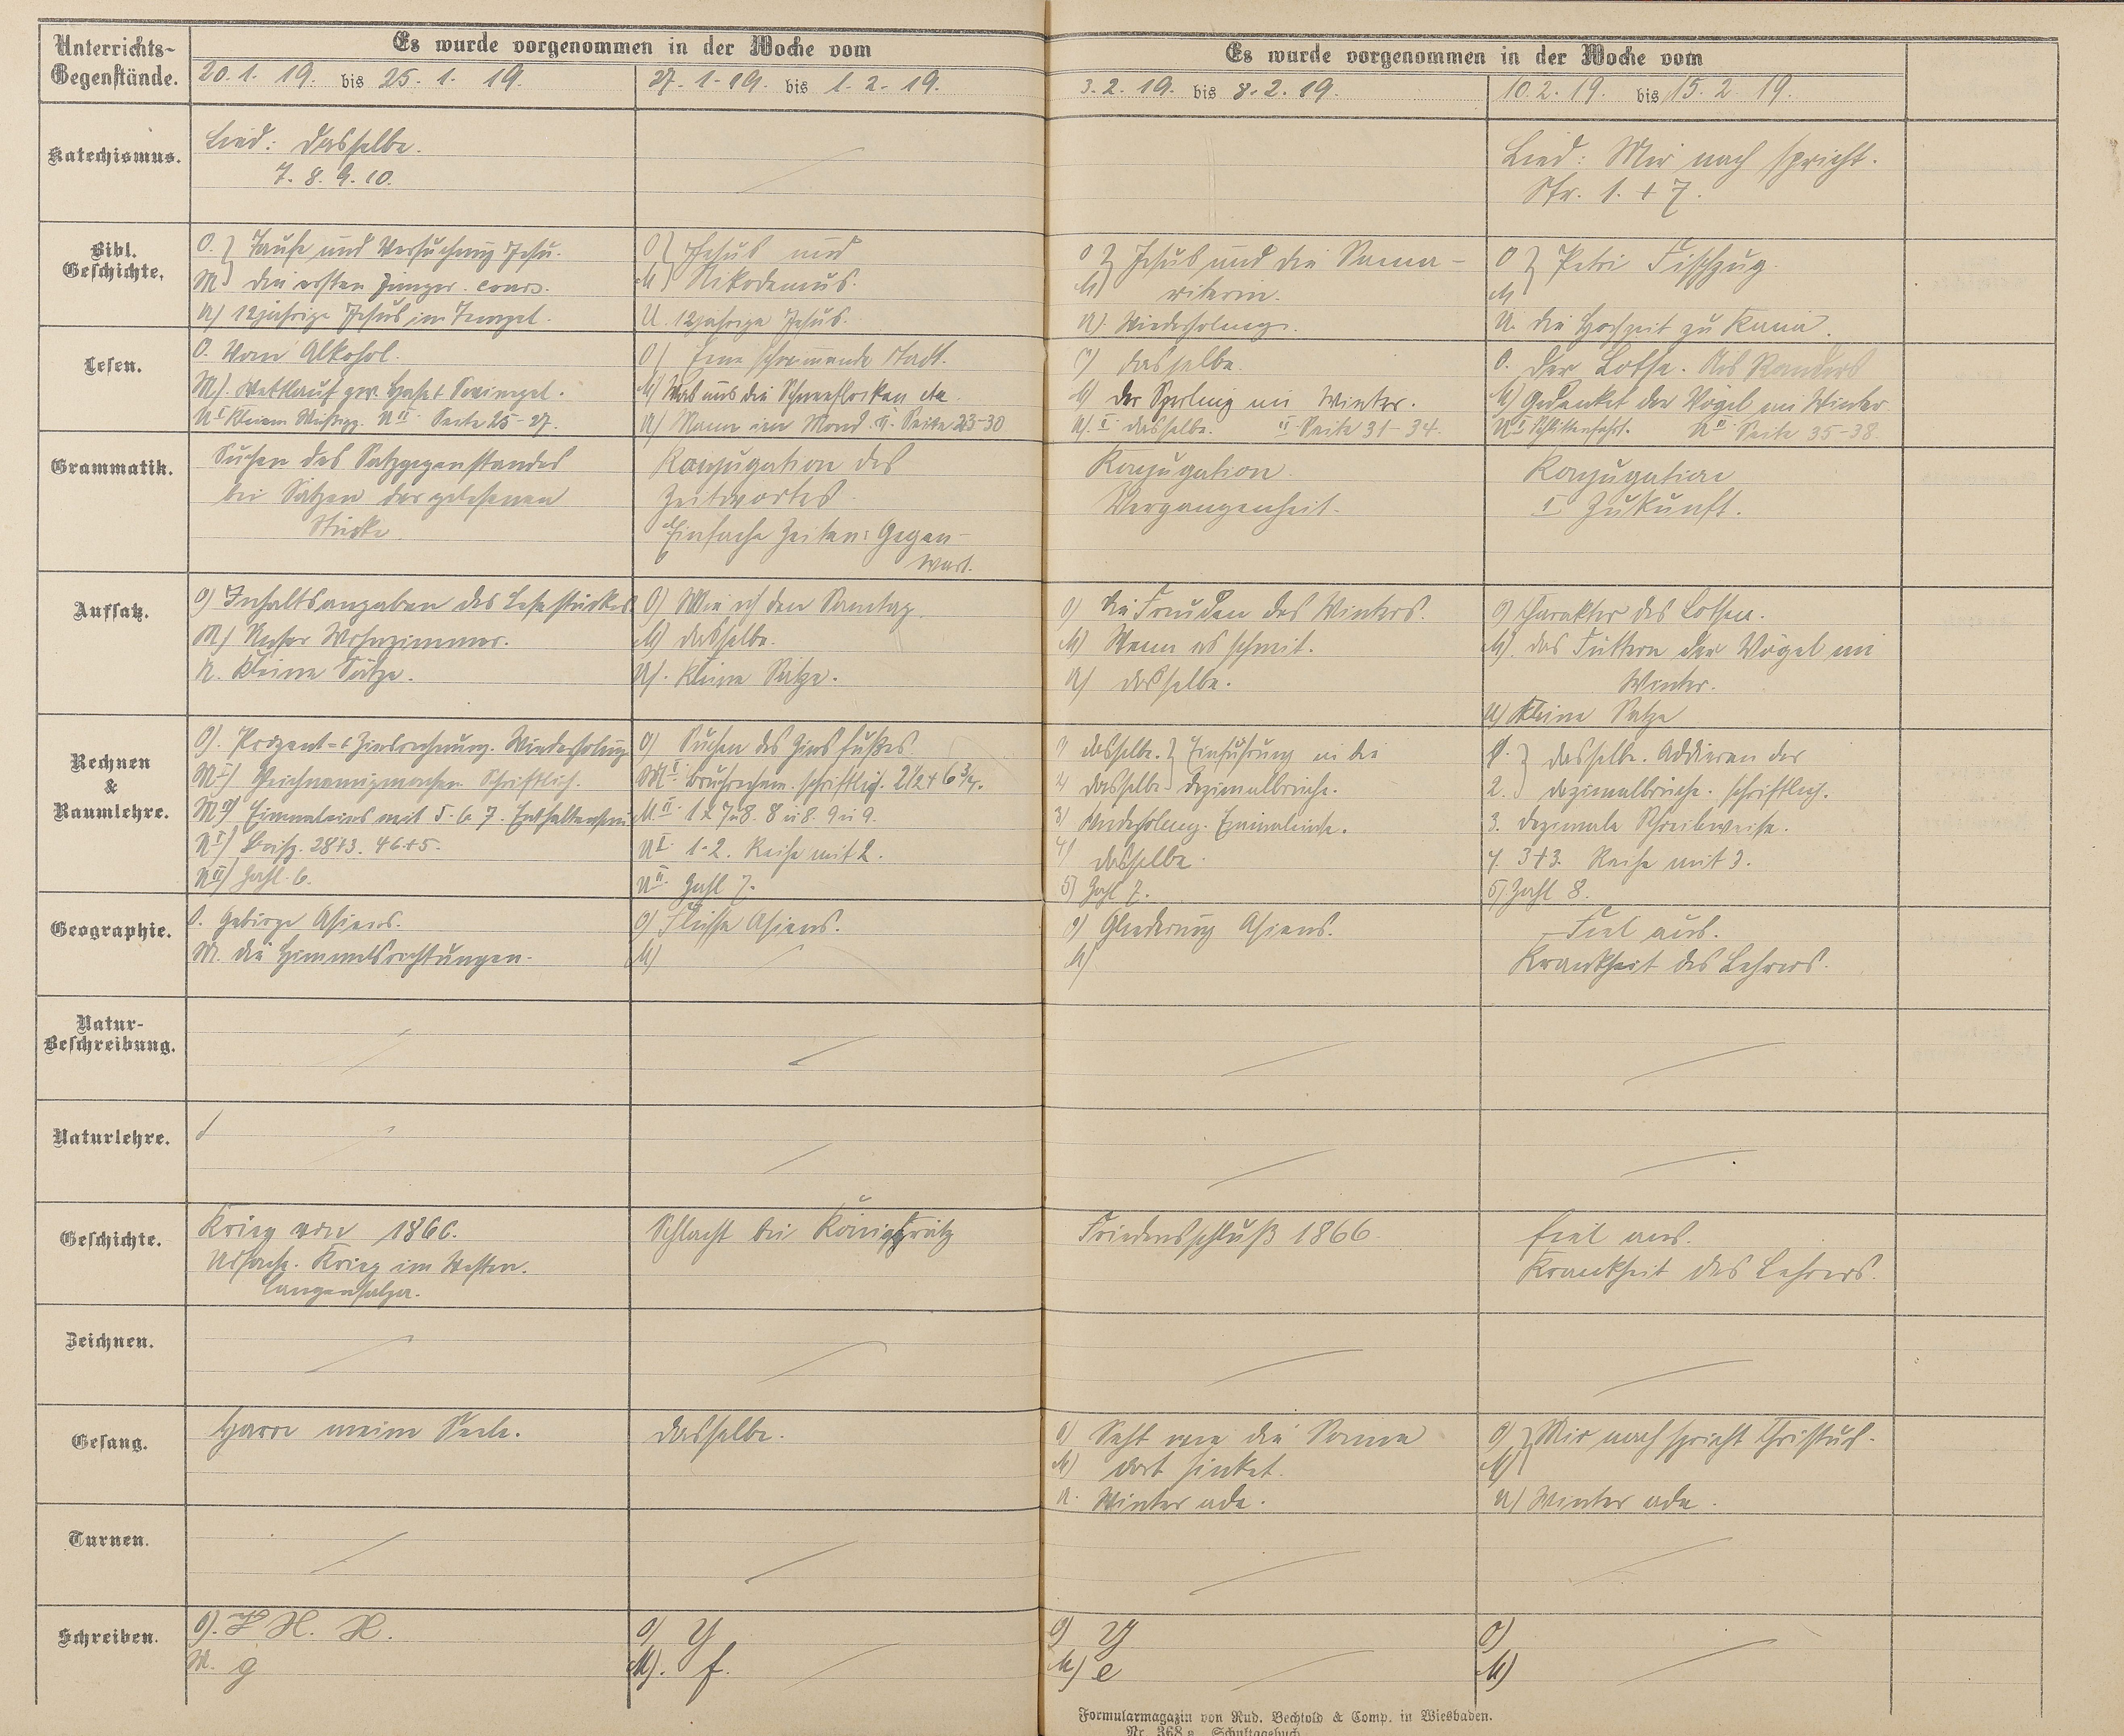 Unterrichts-
Gegenstände.
Es wurde vorgenommen in der Woche vom
20. 1. 19. bis 25. 1. 19.
27. 1. 19. bis 1. 2. 19.
Es wurde vorgenommen in der Woche vom
3. 2. 19. bis 8. 2. 19.
10. 2. 19. bis 15. 2. 19.
Katechismus.
Lied: dasselbe.
7. 8. 9. 10.
Lied: Mir nach spricht.
Str. 1. + 7.
Bibl.
Geschichte.
O. } Taufe und Versuchung Jesu.
M } die ersten Jünger.
U) 12jährige Jesus im Tempel.
O } Jesus und
M } Nikodemus.
U. 12jährige Jesus.
O } Jesus und die Sama-
M } riterin.
U) Wiederholung.
O } Petri Fischzug.
M
U. die Hochzeit zu Kana.
Lesen.
O. Vom Alkohol.
M). Wettlauf zw. Hase + Swinegel.
U I Seite 25-27.
O) Eine schwimmende Stadt.
M) Was aus die Schneeflocken etc.
U) Mann im Mond. II. Seite 23-30
O) dasselbe.
M) Der Sperling im Winter.
U). I. dasselbe. II. Seite 31-34.
O. Der Lotse.
M) Gedenket der Vögel im Winter
U I Schlittenfahrt. U II Seite 35-38.
Grammatik.
Suchen des Satzgegenstandes
bei Sätzen der gelesenen
Stücke.
Konjugation des
Zeitwortes.
Einfache Zeiten: Gegen-
wart.
Konjugation.
Vergangenheit.
Konjugation
I Zukunft.
Aufsatz.
O) Inhaltsangaben des Lesestückes
M) Unser Wohnzimmer.
U. kleine Sätze.
O) Wie ich den Sonntag.
M) dasselbe.
U). kleine Sätze.
O) die Freuden des Winters.
M) Wenn es schneit.
U) dasselbe.
O) Charakter des Lotsen.
M). das Füttern der Vögel im
Winter.
U) Kleine Sätze
Rechnen
&
Raumlehre.
O). Prozent- + Zinsrechnung. Wiederholung
M I) Gleichnamigmachen. Schriftlich.
M II) Einmaleins mit 5. 6. 7. Enthaltensein
U I) 28+3. 46+5.
U II) Zahl 6.
O) Suchen des Zinsfußes.
M I. Bruchrechnen. schriftlich. 2 1/2 + 6 3/4.
M. II. 1 x 7 u 8. 8 u 8. 9 u 9.
U I. 1-2. Reihe mit 2.
U II. Zahl 7.
1) dasselbe. } Einführung in die
2) dasselbe } Dezimalbrüche.
3) Wiederholung. Einmaleins.
4) dasselbe.
5) Zahl 7.
1. } dasselbe. Addieren der
2. } Dezimalbrüche. schriftlich.
3. dezimale Schreibweise.
4. 3+3. Reihe mit 3.
5) Zahl 8.
Geographie.
O. Gebirge Asiens.
M. die Himmelsrichtungen.
O) Flüsse Asiens.
M)
O) Gliederung Asiens.
M)
Fiel aus.
Krankheit des Lehrers.
Natur-
Beschreibung.
Naturlehre.
Geschichte.
Krieg von 1866.
Ursache. Krieg im Westen.
Langensalza.
Schlacht bei Königgrätz
Friedensschluß 1866.
fiel aus.
Krankheit des Lehrers.
Zeichnen.
Gesang.
Harre meine Seele.
dasselbe.
O) Seht wie die Sonne
M) dort sinket.
U. Winter ade.
O) } Mir nach spricht Christus.
M)
U) Winter ade.
Turnen.
Schreiben.
O). H. H.
M. g
O) Y
M). f.
O) Y
M) e
O)
M)
Formularmagazin von Rud. Bechtold & Comp. in Wiesbaden.
Nr. 368a. Schultagebuch